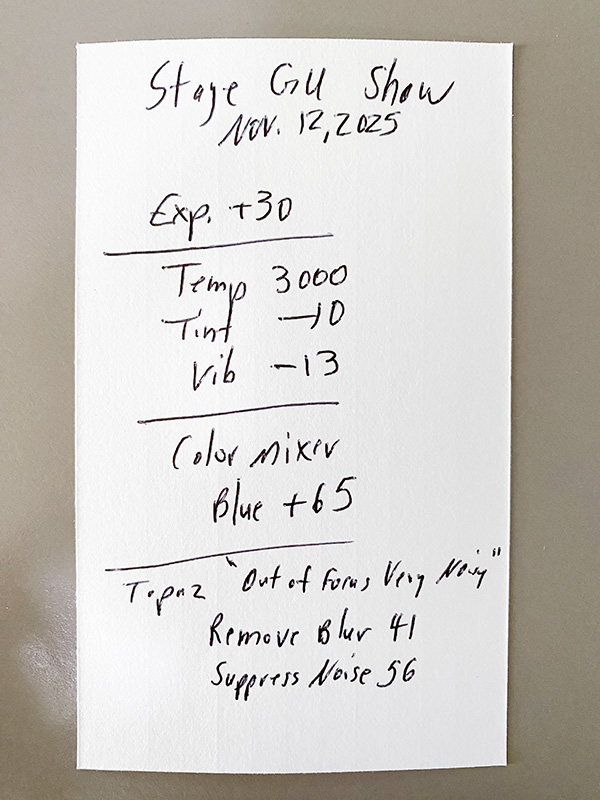 Stage Gill Show
Nov. 12, 2025
Exp. +30
Temp 3000
Tint -10
Vib -13
Color Mixer
Blue +65
Topaz "Out of Focus Very Noisy"
Remove Blur 41
Suppress Noise 56